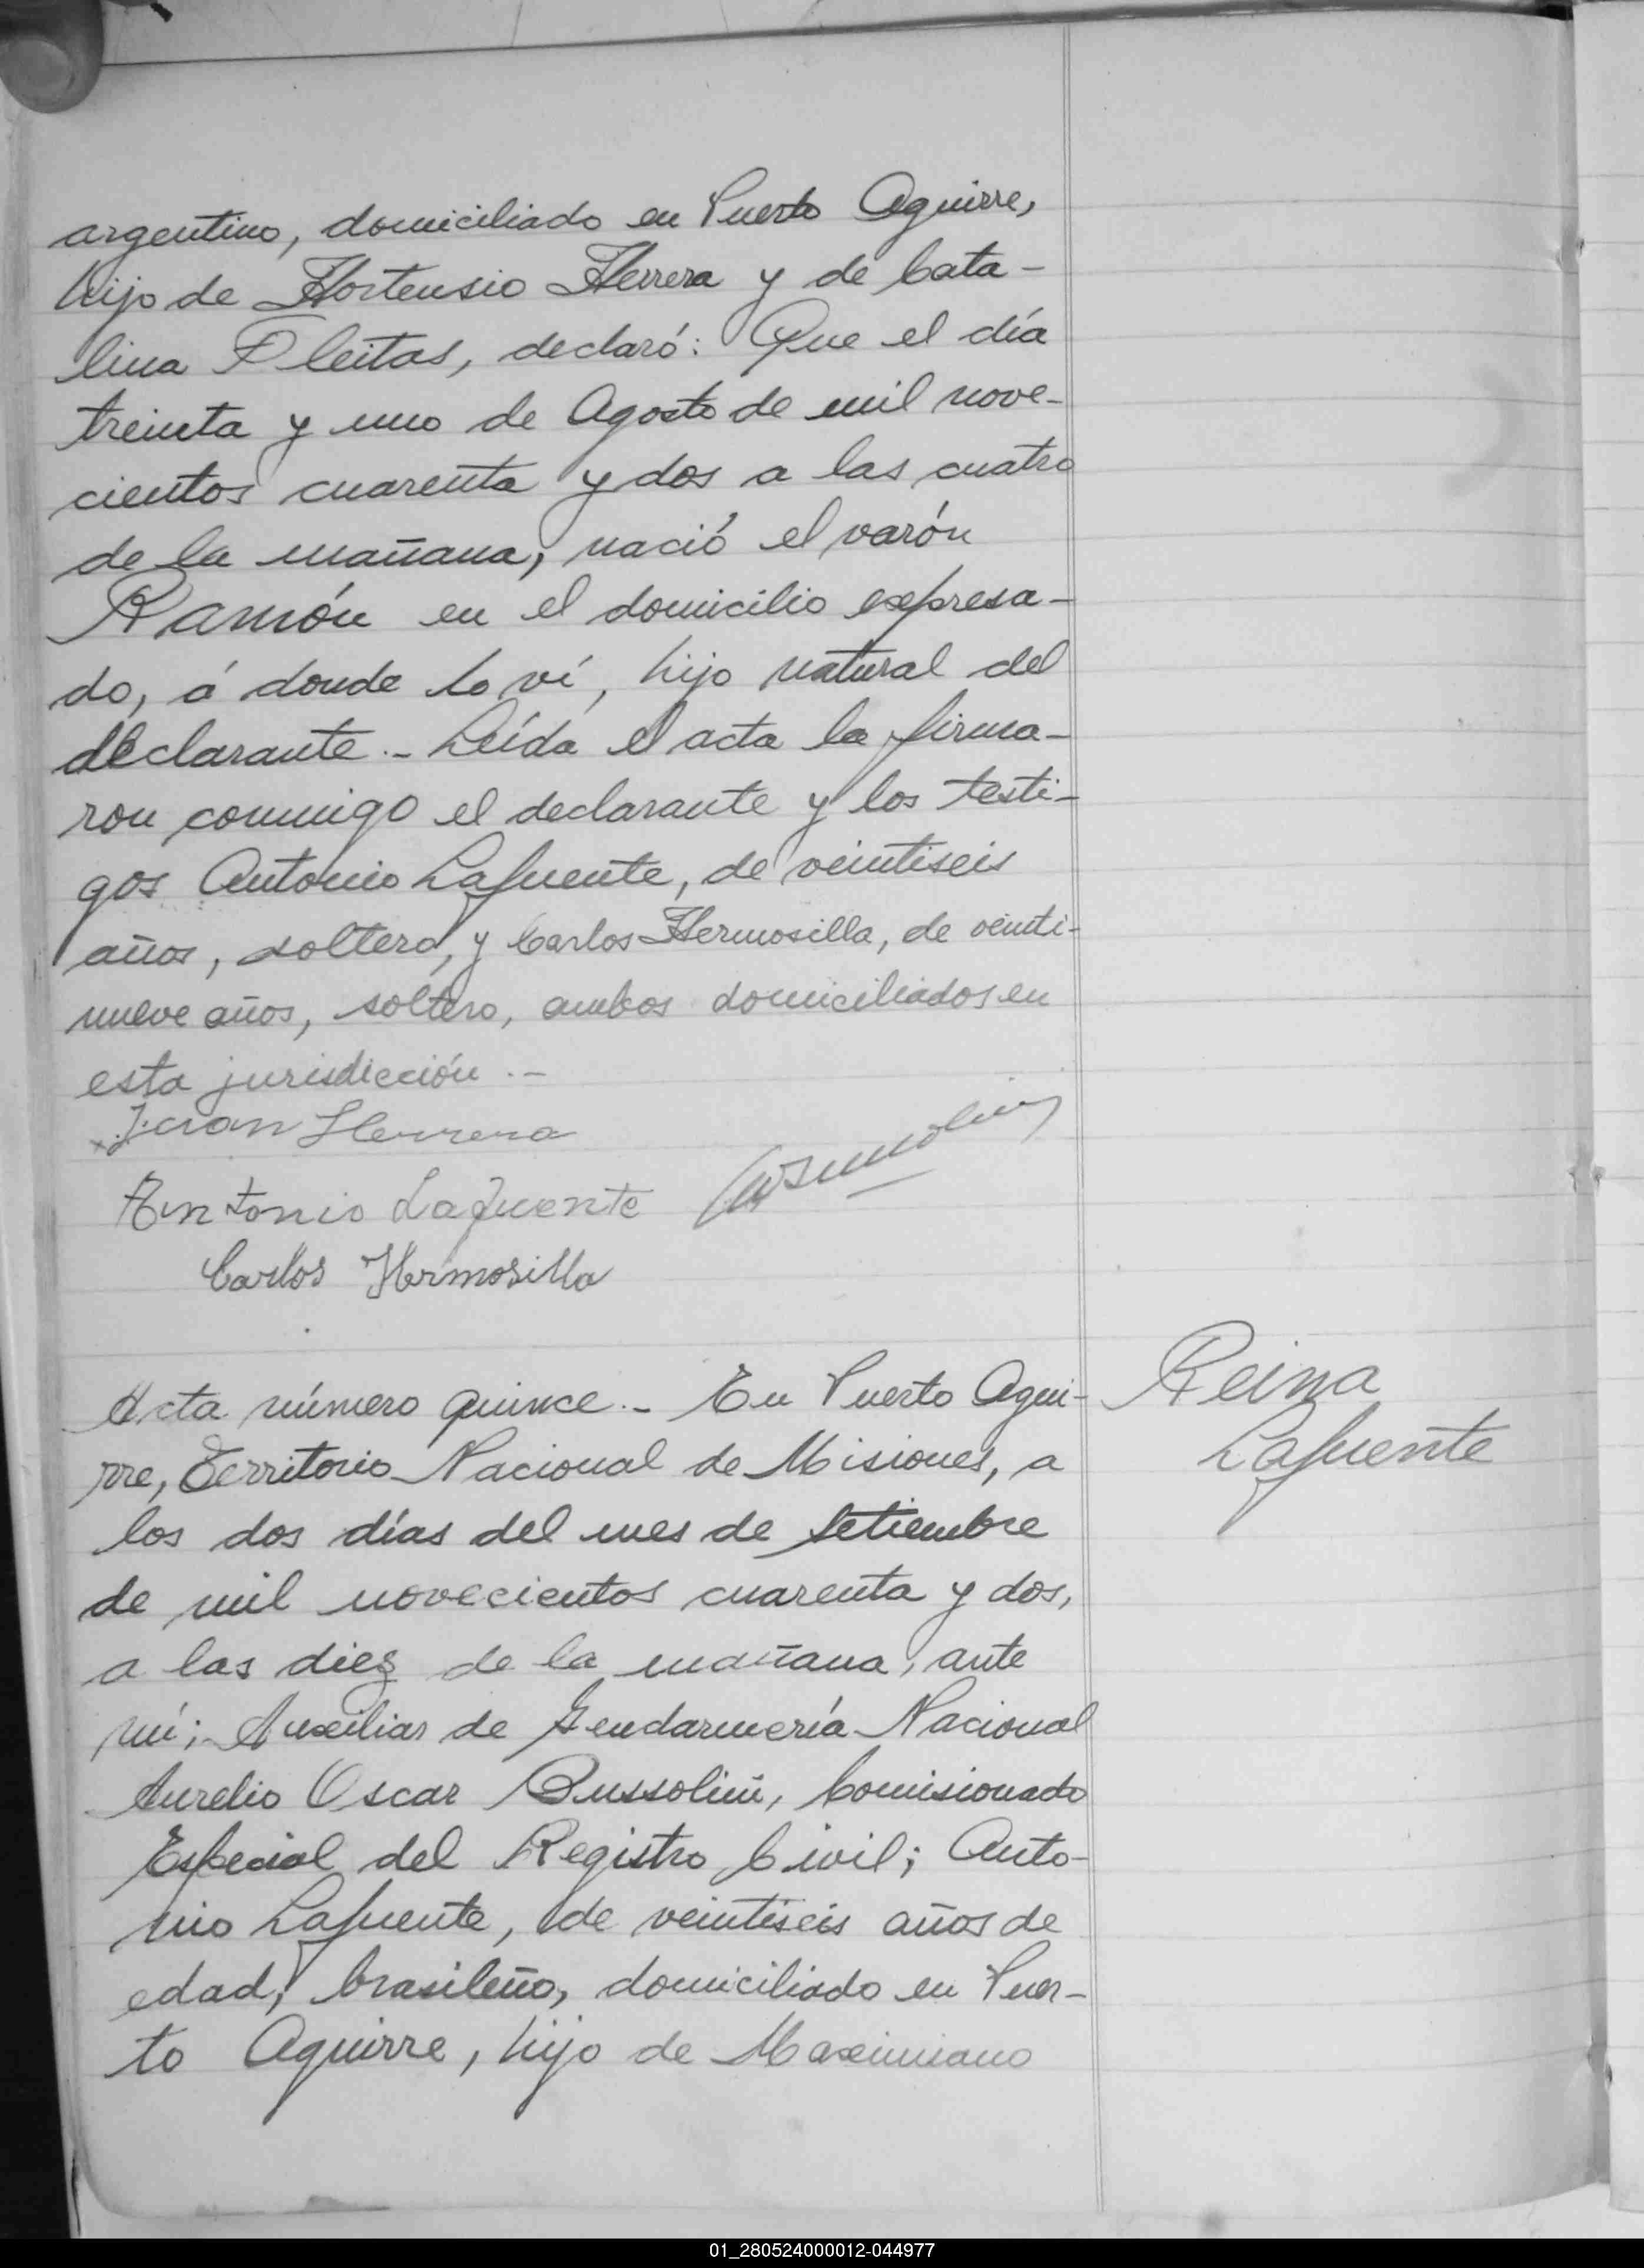 argentino, domiciliado en Puerto Aguirre,
hijo de Hortensio Herrera y de Cata-
lina Fleitas, declaró: Que el día
treinta y uno de Agosto de mil nove-
cientos cuarenta y dos a las cuatro
de la mañana, nació el varón
Ramón en el domicilio expresa-
do, á donde lo ví, hijo natural del
declarante.- Leída el acta la firma-
ron conmigo el declarante y los testi-
gos Antonio Lafuente, de veintiseis
años, soltero, y Carlos Hermosilla, de veinti-
nueve años, soltero, ambos domiciliados en
esta jurisdicción.-
Juan Herrera
Antonio Lafuente
Carlos Hermosilla
Acta número quince.- En Puerto Agui-
rre, Territorio Nacional de Misiones, a
los dos días del mes de setiembre
de mil novecientos cuarenta y dos,
a las diez de la mañana, ante
mí; Auxiliar de Gendarmería Nacional
Aurelio Oscar Bussolini, Comisionado
Especial del Registro Civil; Anto-
nio Lafuente, de veintiseis años de
edad, brasileño, domiciliado en Puer-
to Aguirre, hijo de Maximiano
Reina
Lafuente
01_280524000012-044977